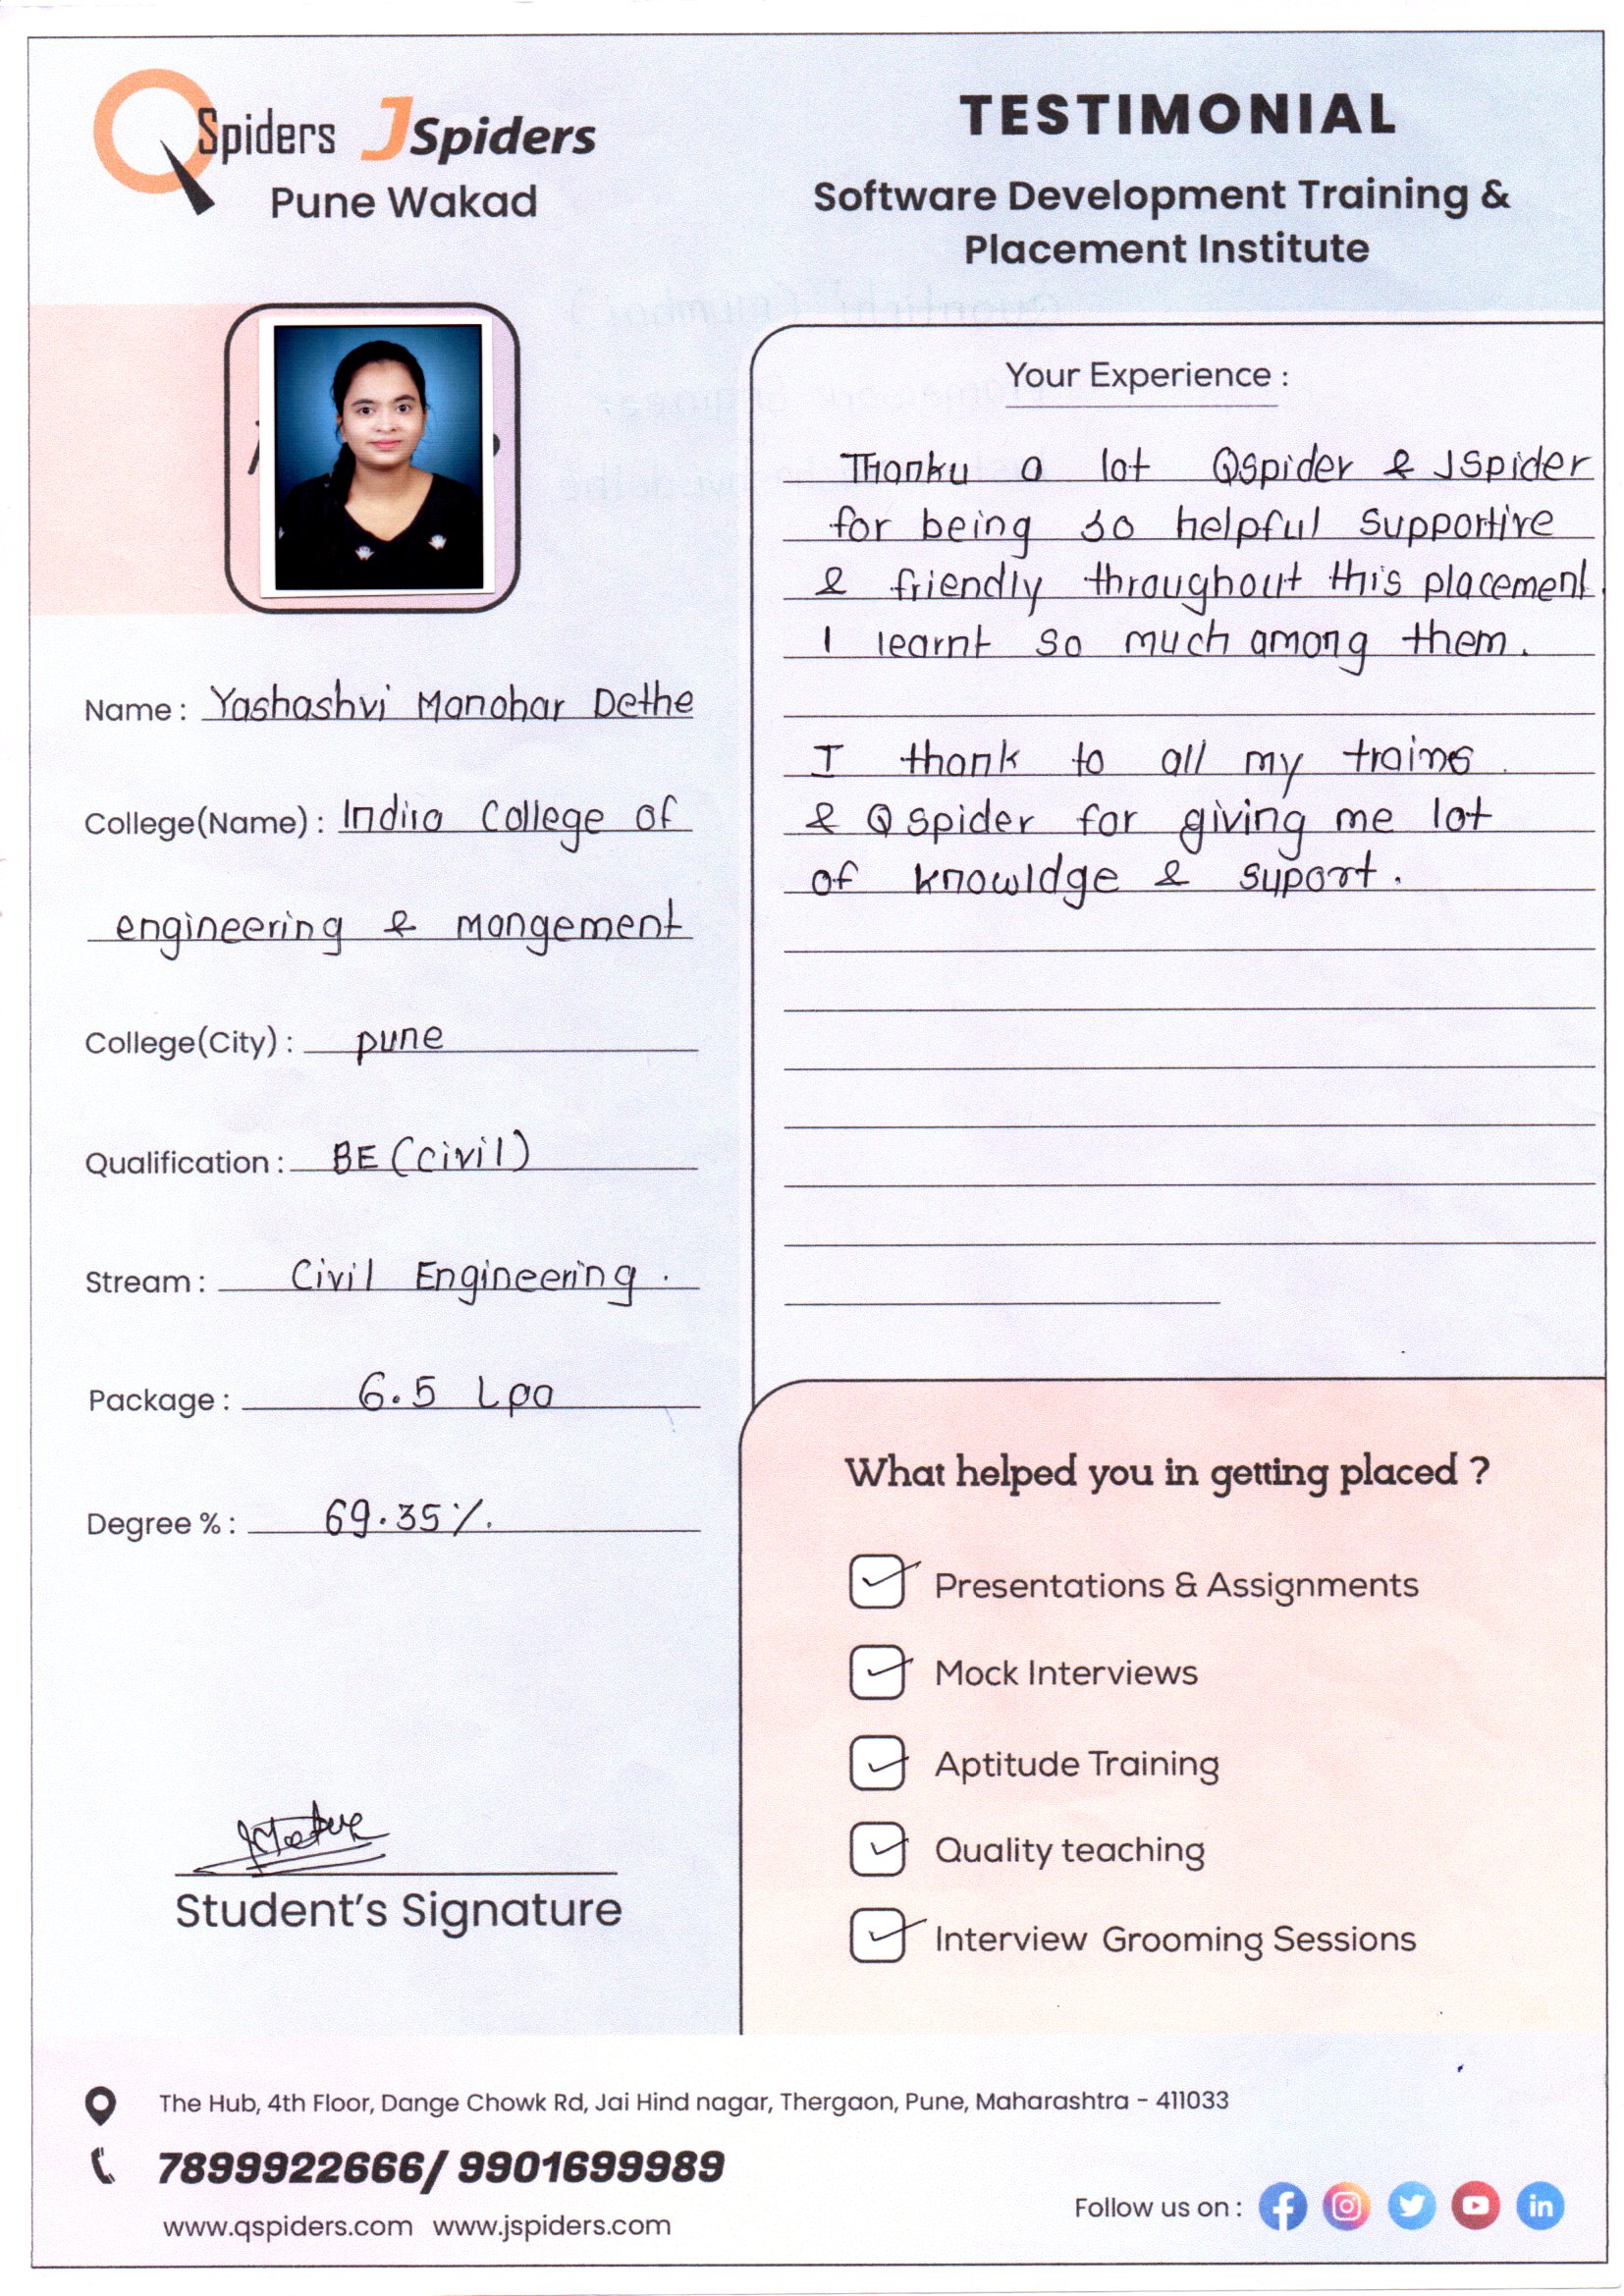 QSpiders JSpiders
Pune Wakad
TESTIMONIAL
Software Development Training &
Placement Institute
Name : Yashashvi Manohar Dethe
College(Name) : Indira College of
engineering & mangement
College(City) : pune
Qualification : BE (civil)
Stream : Civil Engineering .
Package : 6.5 Lpa
Degree % : 69.35 %.
Student's Signature
Your Experience :
Thanku a lot QSpider & JSpider
for being so helpful supportive
& friendly throughout this placement.
I learnt so much among them.
I thank to all my
& QSpider for giving me lot
of knowldge & suport.
What helped you in getting placed ?
Presentations & Assignments
Mock Interviews
Aptitude Training
Quality teaching
Interview Grooming Sessions
The Hub, 4th Floor, Dange Chowk Rd, Jai Hind nagar, Thergaon, Pune, Maharashtra - 411033
7899922666/ 9901699989
www.qspiders.com www.jspiders.com
Follow us on :